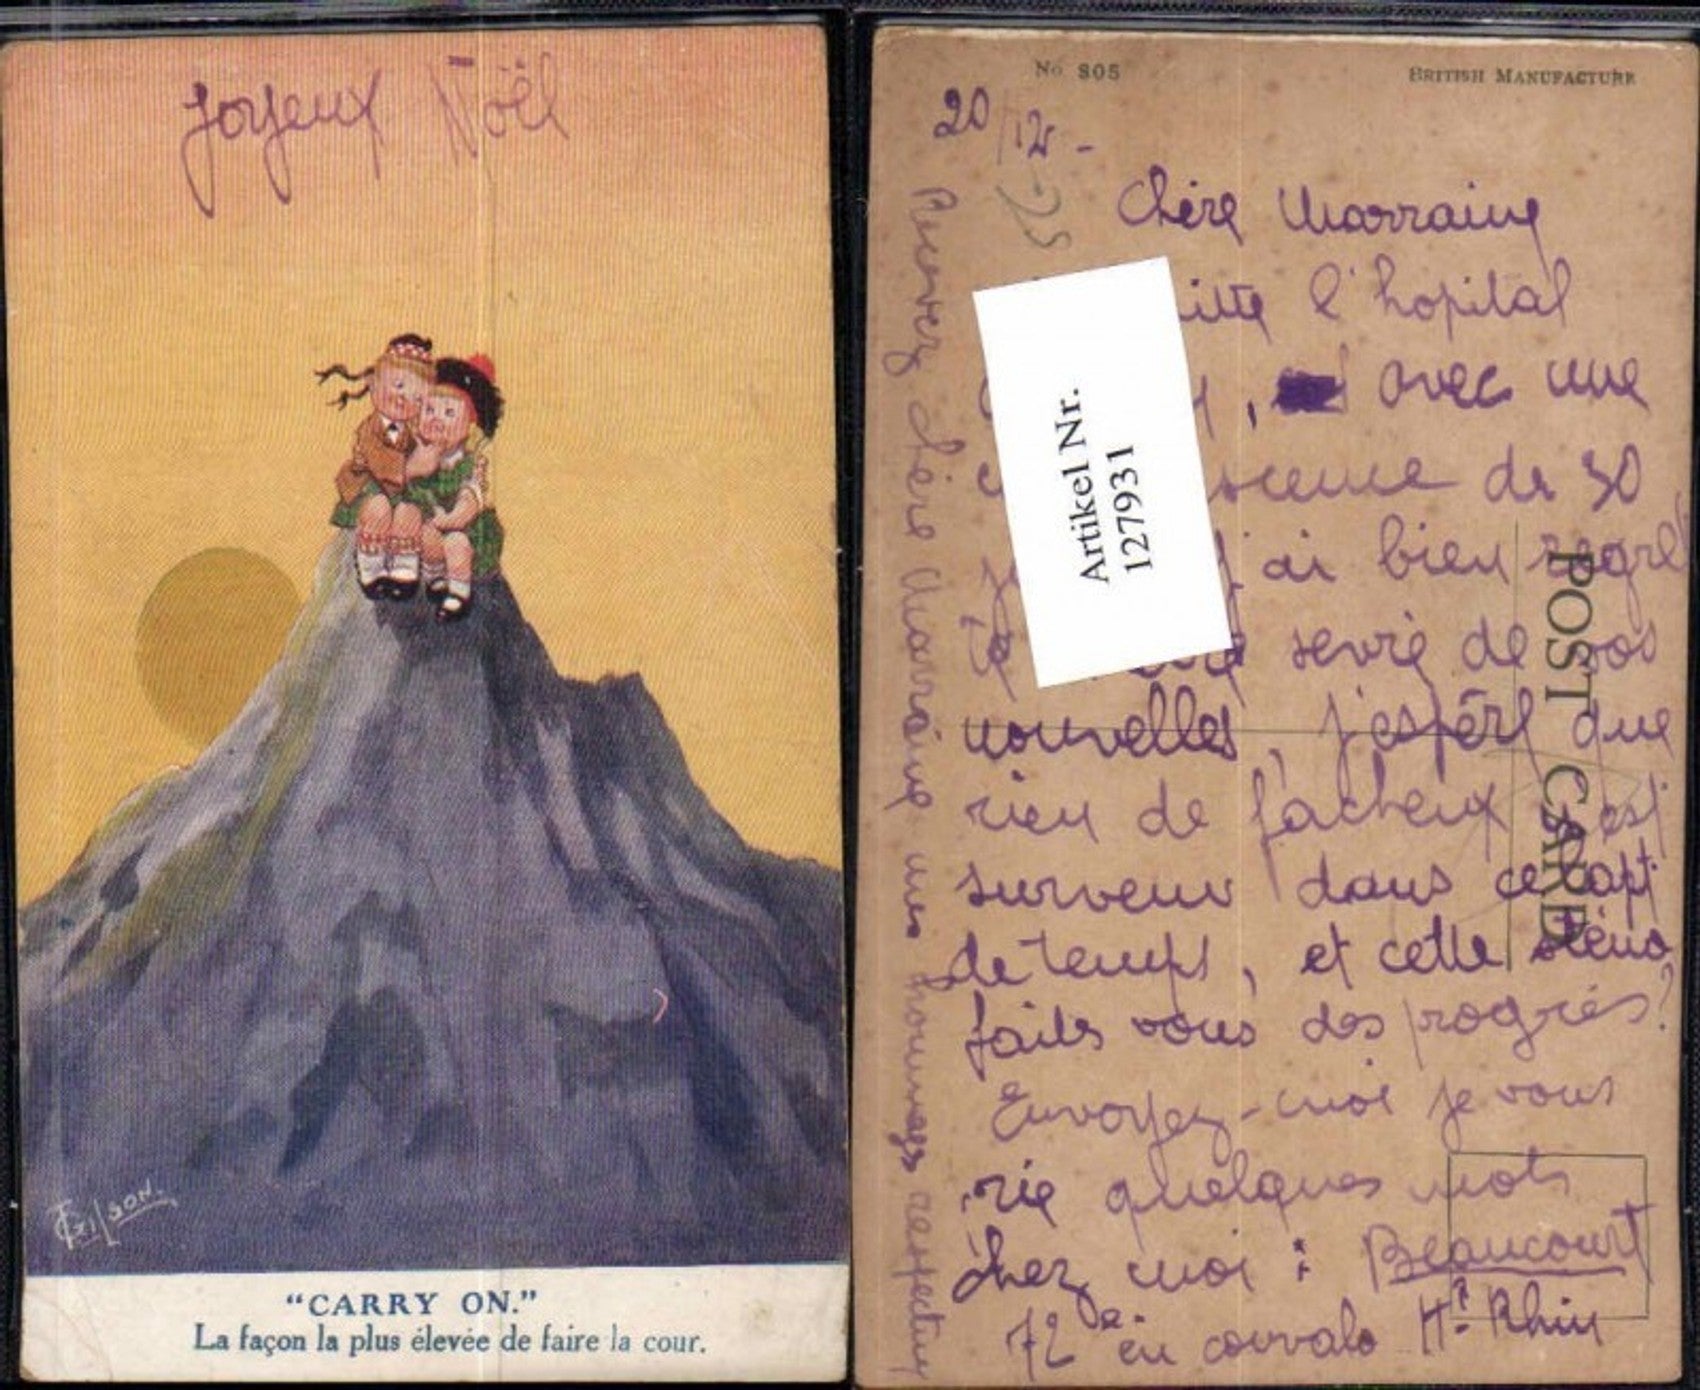 Joyeux Noël
"CARRY ON."
La façon la plus élevée de faire la cour.
No 805
BRITISH MANUFACTURE
20/12 -
25
Chère Marraine
l'hopital
, avec une
de 30
j'ai bien regret
té sevré de vos
nouvelles, j'espère que
rien de facheux s'est
survenu dans ce lapt
de temps, et cette sténo
faites vous des progrès?
Envoyez-moi je vous
prie quelques mots
chez moi : Beaucourt
72 en convalo Ht Rhin
Recevez chère Marraine mes hommages respectueux
POST CARD
Artikel Nr.
127931